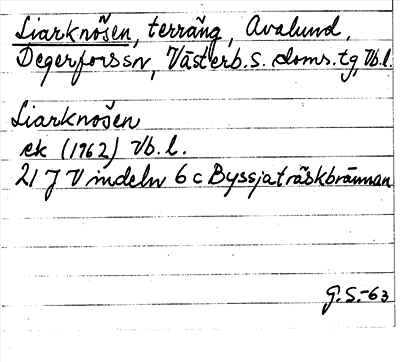 Liarknösen, terräng, Avalund,
Degerforssn, Västerb.s. doms.tg, Vb.l.
Liarknösen
ek (1962) Vb.l.
21 J Vindeln 6 c Byssjaträskbrännan
G.S.-63